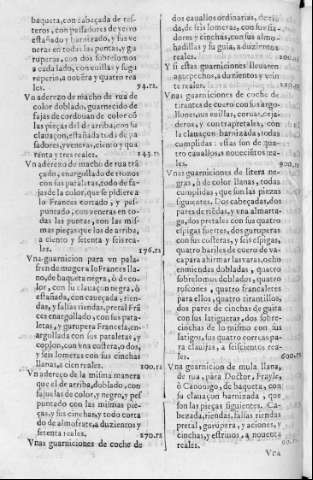 baqueta, con cabeçada de ros-
teros, con pulidores de yerro
estañado y barnizado, y sus ve
neras en todas las puntas, y ga
ruperas, con dos sobrelomos
a cada lado, con villas, y su gu
rupetin, a nouenta y quatro rea
les. 94.rs
Vn aderezo de macho de rua de
color doblado, guarnecido de
fajas de cordouan de color cō
las pieças del de arriba, con su
clauaçon, estañada toda de pa
sadores, y veneras, ciento y qua
renta y tres reales. 143.rs
Vn aderezo de macho de rua frā
çado, enargollado de trozos
con sus paraletas, todo de fa-
jas de la color, que se pidiere a
lo Frances cortado, y pes
puntado, con veneras en to-
das las puntas, con las mis-
mas pieças que los de arriba,
a ciento y setenta y seis rea-
les. 176.rs
Vna guarnicion para vn pala-
fren de mogor a lo Frances lla-
no, de baqueta negra, ò de co-
lor, con su clauaçon negra, ò
estañada, con cabeçada, rien-
das, y falsas riendas, pretal Frā
ces enargollado, con sus pata-
letas, y gurupera Francesa, en-
argollada con sus pataletas, y
copson, con vna culbreta, o dos,
y seis lomeras con sus cinchas
llanas, a cien reales. 100.rs
Vn aderezo de la misma manera
que el de arriba, doblado, con
fajuelas de color, y negro, y pes
puntado con las mismas pie-
ças, y sus cinchas y todo corta
do de almofrate, a duzientos y
setenta reales. 270.rs
Vnas guarniciones de coche de
dos cauallos ordinarias, de
da, de seis lomeras, con sus
dores y cinchas, con sus almo
hadillas y su guia, a duzientos
reales.
Y si estas guarniciones lleuaren
a duzientos y
te reales.
Vnas guarniciones de coche de
tirantes de cuero con sus argo-
llones, sus euillas, coruas, ceja-
deros, y contrapretales, con
la clauaçon barnizada, todas
cumplidas: estas son de qua-
tro cauallos, a nouecientos rea-
les. 900.rs
Vnas guarniciones de litera ne-
gras, ò de color llanas, todas
cumplidas, que son las pieças
siguientes. Dos cabeçadas, dos
pares de riēdas, y vna almarta-
ga, dos pretales con sus quatro
espigas fuertes, dos guruperas
con sus cosferas, y seis espigas,
quatro bariles de cuero de va-
ca para ahirmar las varas, ocho
enmiendas dobladas, quatro
sobrelomos doblados, quatro
coscones, quatro francaletes
para ellos, quatro tirantillos,
dos pares de cinchas de gaita
con sus latigueras, dos sobre-
cinchas de lo mismo con sus
latigos, sus quatro correas pa-
ra clauijas, a seiscientos rea-
les. 600.rs
Vna guarnicion de mula llana,
de rua, para Doctor, Frayle,
ò Canonigo, de baqueta, con
su clauaçon barnizada, que
son las pieças siguientes. Ca-
bezada, riendas, falsas riendas
pretal, gurupera, y aciones, y
cinchas, y estriuos, a nouenta
reales. 90.rs
Vna